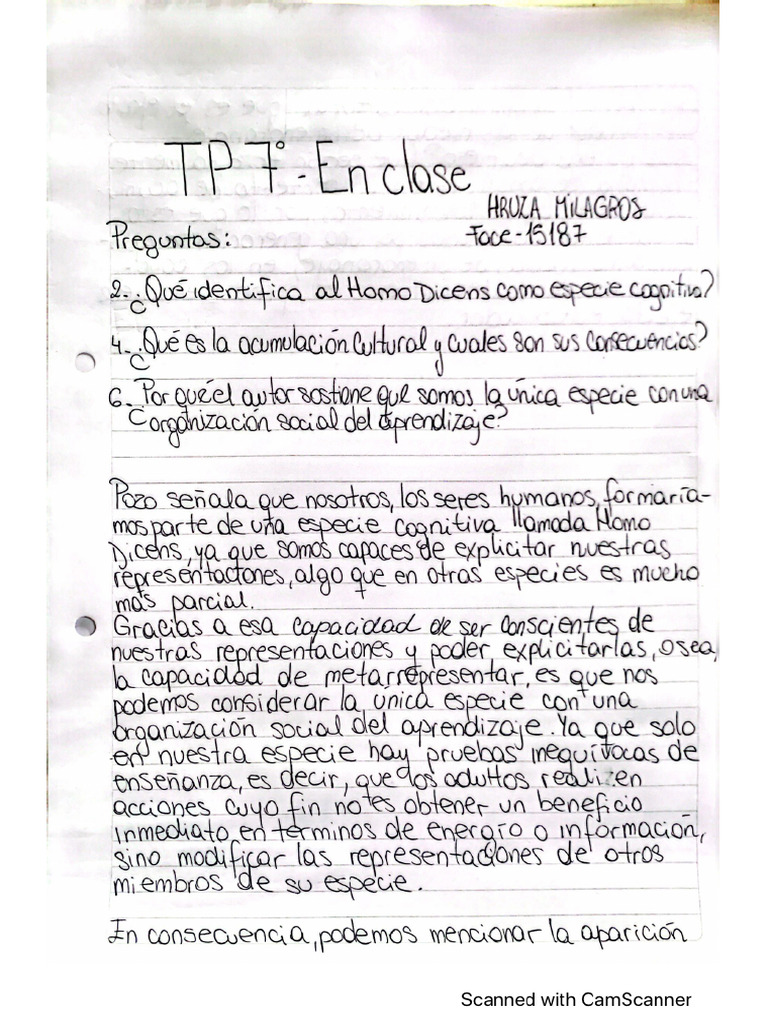 TP 7° - En clase
HRUZA MILAGROS
Face - 15187
Preguntas:
2. ¿Qué identifica al Homo Dicens como especie cognitiva?
4. ¿Qué es la acumulación cultural y cuales son sus consecuencias?
6. ¿Por qué el autor sostiene que somos la única especie con una
organización social del aprendizaje?
Pozo señala que nosotros, los seres humanos, formaría-
mos parte de una especie cognitiva llamada Homo
Dicens, ya que somos capaces de explicitar nuestras
representaciones, algo que en otras especies es mucho
más parcial.
Gracias a esa capacidad de ser conscientes de
nuestras representaciones y poder explicitarlas, o sea,
la capacidad de metarrepresentar, es que nos
podemos considerar la única especie con una
organización social del aprendizaje. Ya que solo
en nuestra especie hay pruebas inequívocas de
enseñanza, es decir, que los adultos realizen
acciones cuyo fin no es obtener un beneficio
inmediato en términos de energía o información,
sino modificar las representaciones de otros
miembros de su especie.
En consecuencia, podemos mencionar la aparición
Scanned with CamScanner